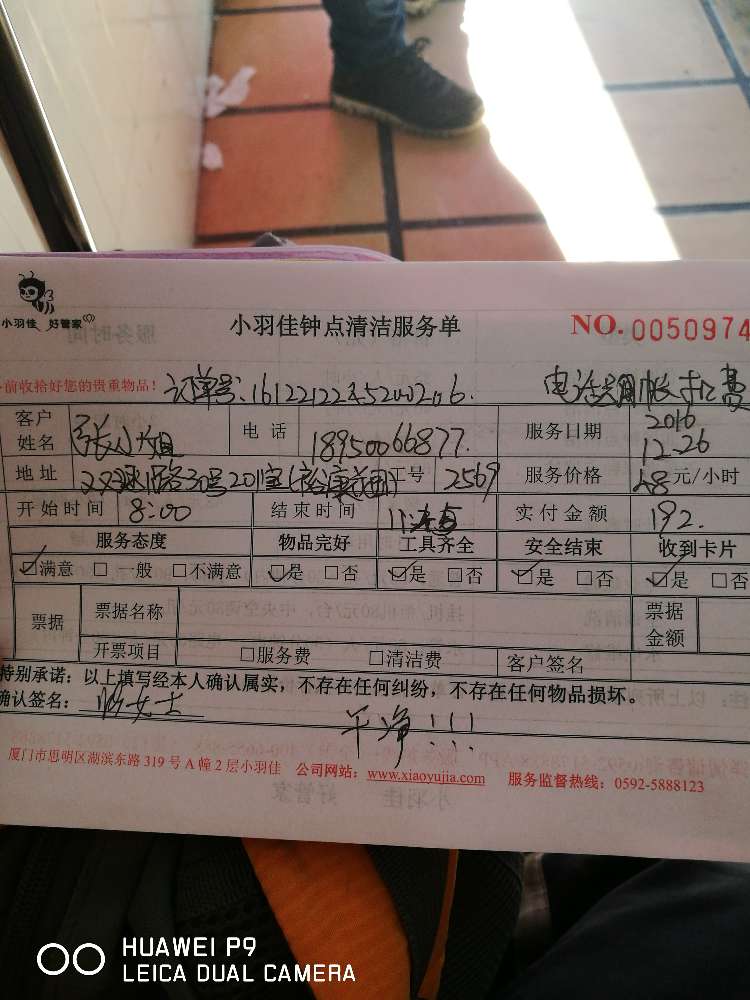 小羽佳 好管家
小羽佳钟点清洁服务单 NO. 0050974
前收拾好您的贵重物品! 订单号:
客户姓名 张小姐 电话 18950066877. 服务日期 2016 12.26
地址 30号201室 工号 2569 服务价格 48元/小时
开始时间 8:00 结束时间 实付金额 192.
服务态度 物品完好 工具齐全 安全结束 收到卡片
☑满意 □一般 □不满意 ☑是 □否 ☑是 □否 ☑是 □否 ☑是 □否
票据 票据名称 票据金额
开票项目 □服务费 □清洁费 客户签名
特别承诺:以上填写经本人确认属实,不存在任何纠纷,不存在任何物品损坏。
确认签名: 女士 干净!!!
厦门市思明区湖滨东路 319 号 A 幢 2 层小羽佳 公司网站:www.xiaoyujia.com 服务监督热线:0592-5888123
HUAWEI P9
LEICA DUAL CAMERA